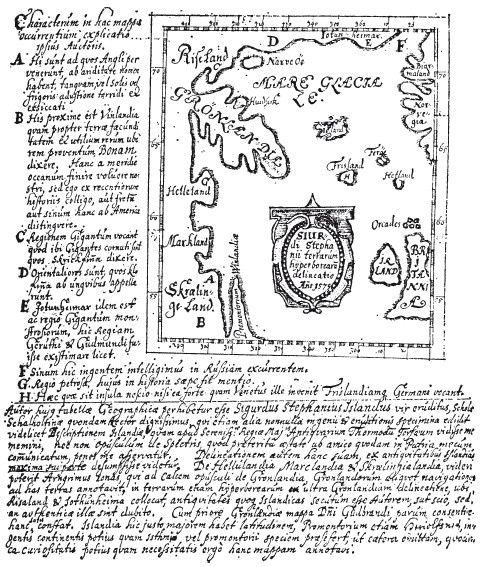 Characterum in hac mappa
occurrentium explicatio
ipsius Auctoris.
A. Hi sunt ad quos Angli per
venerunt, ab ariditate nomen
habent, tanquam vel solis vel
frigoris adustione torridi et
exsiccati.
B. His proxime est Vinlandia
quam propter terræ fæcundi
tatem et utilium rerum ube
rem proventum Bonam
dixere. Hanc a meridie
oceanum finire voluere no
stri, sed ego ex recentiorum
historiis colligo, aut fretum
aut sinum hanc ab America
distinguere.
C. Regionem Gigantum vocant
quod ibi Gigantes cornuti sint
quos Skrickfinna dixere.
D. Orientaliores sunt, quos Klo
finna ab unguibus appella
runt.
E. Jotunheimar idem est
ac regio Gigantum mon
strosorum, hic Regiam
Geruthi & Gudmundi fu
isse existimare licet.
F. Sinum hic ingentem intelligimus in Russiam excurrentem.
G. Regio petrosa, hujus in historia sæpe fit mentio.
H. Hæc quæ sit insula nescio nisi ea forte quam Venetus ille invenit Frislandiamq Germani vocant
Riseland
D
Jotun heimar
E
F
Narve Oe
MARE GLACIA
LE.
Biar
maland
Nor
vegia
GRÖNLANDIA
Huidserk
Island
Frisland
H
Feröe
Hetland
Helleland
Markland
Skralin
ge Land
B
Promontorium Winlandiæ
Orcades
IRLAND
BRI
TANNI
A
SIUR
di Stepha
nii terrarum
hyperboreare
delineatio
Año 1570
Autor hujus tabellæ Geographicæ perhibetur esse Sigurdus Stephanius Islandus vir eruditus, Scholæ
Schalholtinæ quondam Rector dignissimus, qui etiam alia nonnulla ingenii & eruditionis specimina edidit
videlicet Descriptionem Islandiæ, quam apud Sereniss. Regiæ Maj. Historiarum Thormodum Torfæum vidisse me
memini, nec non Opusculum de Spectris, quod præterito anno ab amico quodam in Patria mecum
comunicatum, penes me asservatur. Delineationem autem hanc suam, ex antiquitatibus Islandicis
maxima sui parte desumsisse videtur. De Hellulandia, Marclandia & Skralinglandia, videri
poterit Arngrimus Jonas, qui ad calcem opusculi de Gronlandia, Gronlandorum aliquot navigationes
ad has terras annotavit, in terrarum etiam hyperborearum ex ultra Gronlandiam delineatione, ubi
Riseland & Jothunheima collocat, antiquitates quoq Islandicas secutum esse Autorem, sat scio, sed,
an authenticæ illæ sint dubito. Cum priore Gronlandiæ mappa Dni Gudbrandi parum consentire
hanc constat. Islandia hic justo majorem habet latitudinem, Promontorium etiam Heriolfsnes, in
gentis continentis potius quam Isthmi vel promontorii speciem præ se fert, ut cætera omittam, quoniam
ea curiositatis potius quam necessitatis ergo hanc mappam annotavi.